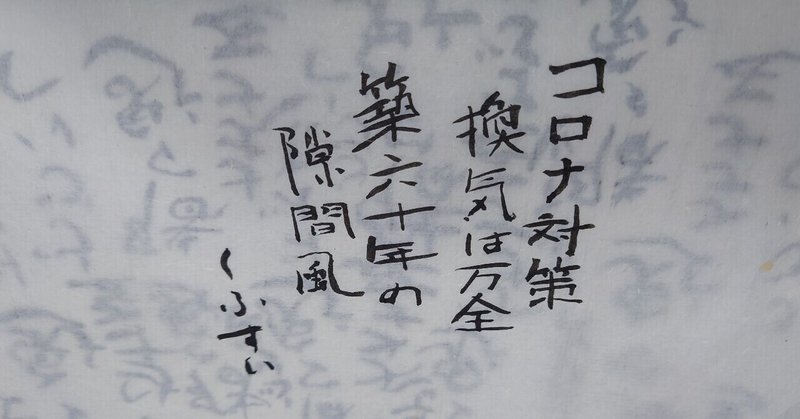 コロナ対策
換気は万全
築六十年の
隙間風
くふすい